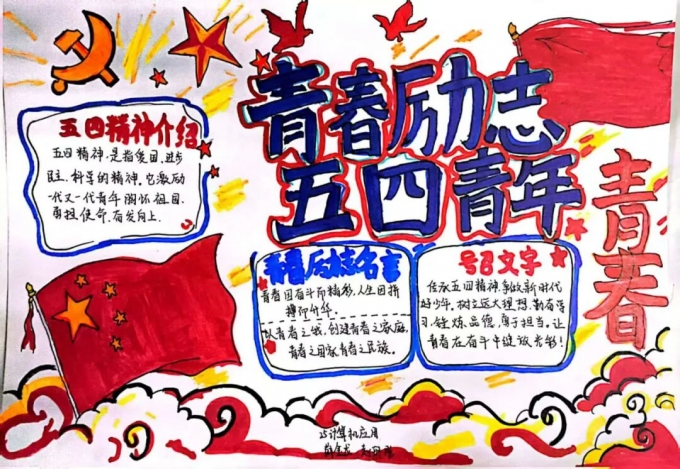 青春励志
五四青年
青春
五四精神介绍
五四精神,是指爱国、进步
民主、科学的精神。它激励
一代又一代青年胸怀祖国、
勇担使命、奋发向上。
青春励志名言
青春因奋斗而精彩,人生因拼
搏而升华。
以青春之我,创建青春之家庭,
青春之国家青春之民族。
号召文字
传承五四精神,争做新时代
好少年。树立远大理想,勤奋学
习,锤炼品德,勇于担当。让
青春在奋斗中绽放光彩!
25计算机应用